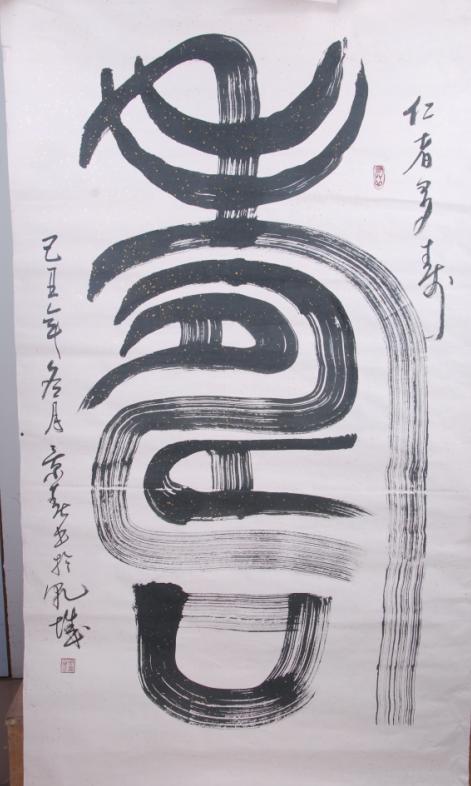 仁者多寿
壽
己丑年冬月京书於凤城